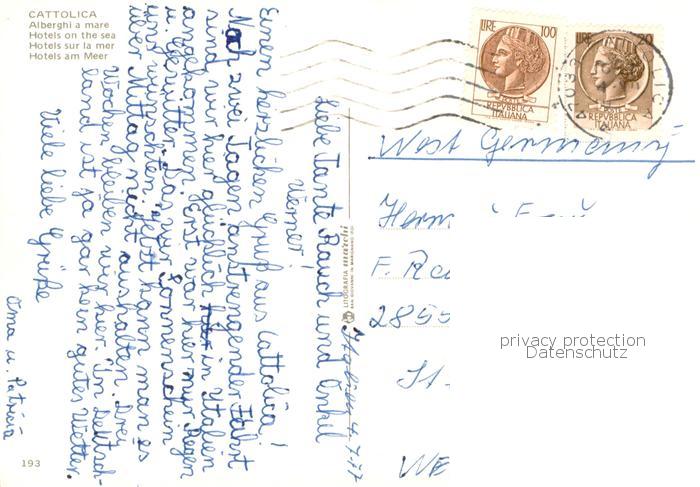 CATTOLICA
Alberghi a mare
Hotels on the sea
Hotels sur la mer
Hotels am Meer
LIRE 100
REPVBBLICA
ITALIANA
LIRE
REPVBBLICA
ITALIANA
Italien 4.7.77
Liebe Tante Rauch und Onkel
Werner!
Einen herzlichen Gruß aus Cattolica!
Nach zwei Tagen anstrengender Fahrt
sind wir hier glücklich in Italien
angekommen. Erst war hier nur Regen
u. Gewitter. Das wir Sonnenschein
uns wünschen. Jetzt kann man es
über Mittag nicht aushalten. Drei
Wochen bleiben wir hier. In Deutsch-
land ist ja gar kein gutes Wetter.
Viele liebe Grüße
Oma u. Patricia
West Germany
F.
2855
St.
WE
LITOGRAFIA marchi
SAN GIOVANNI IN MARIGNANO (FO)
privacy protection
Datenschutz
193